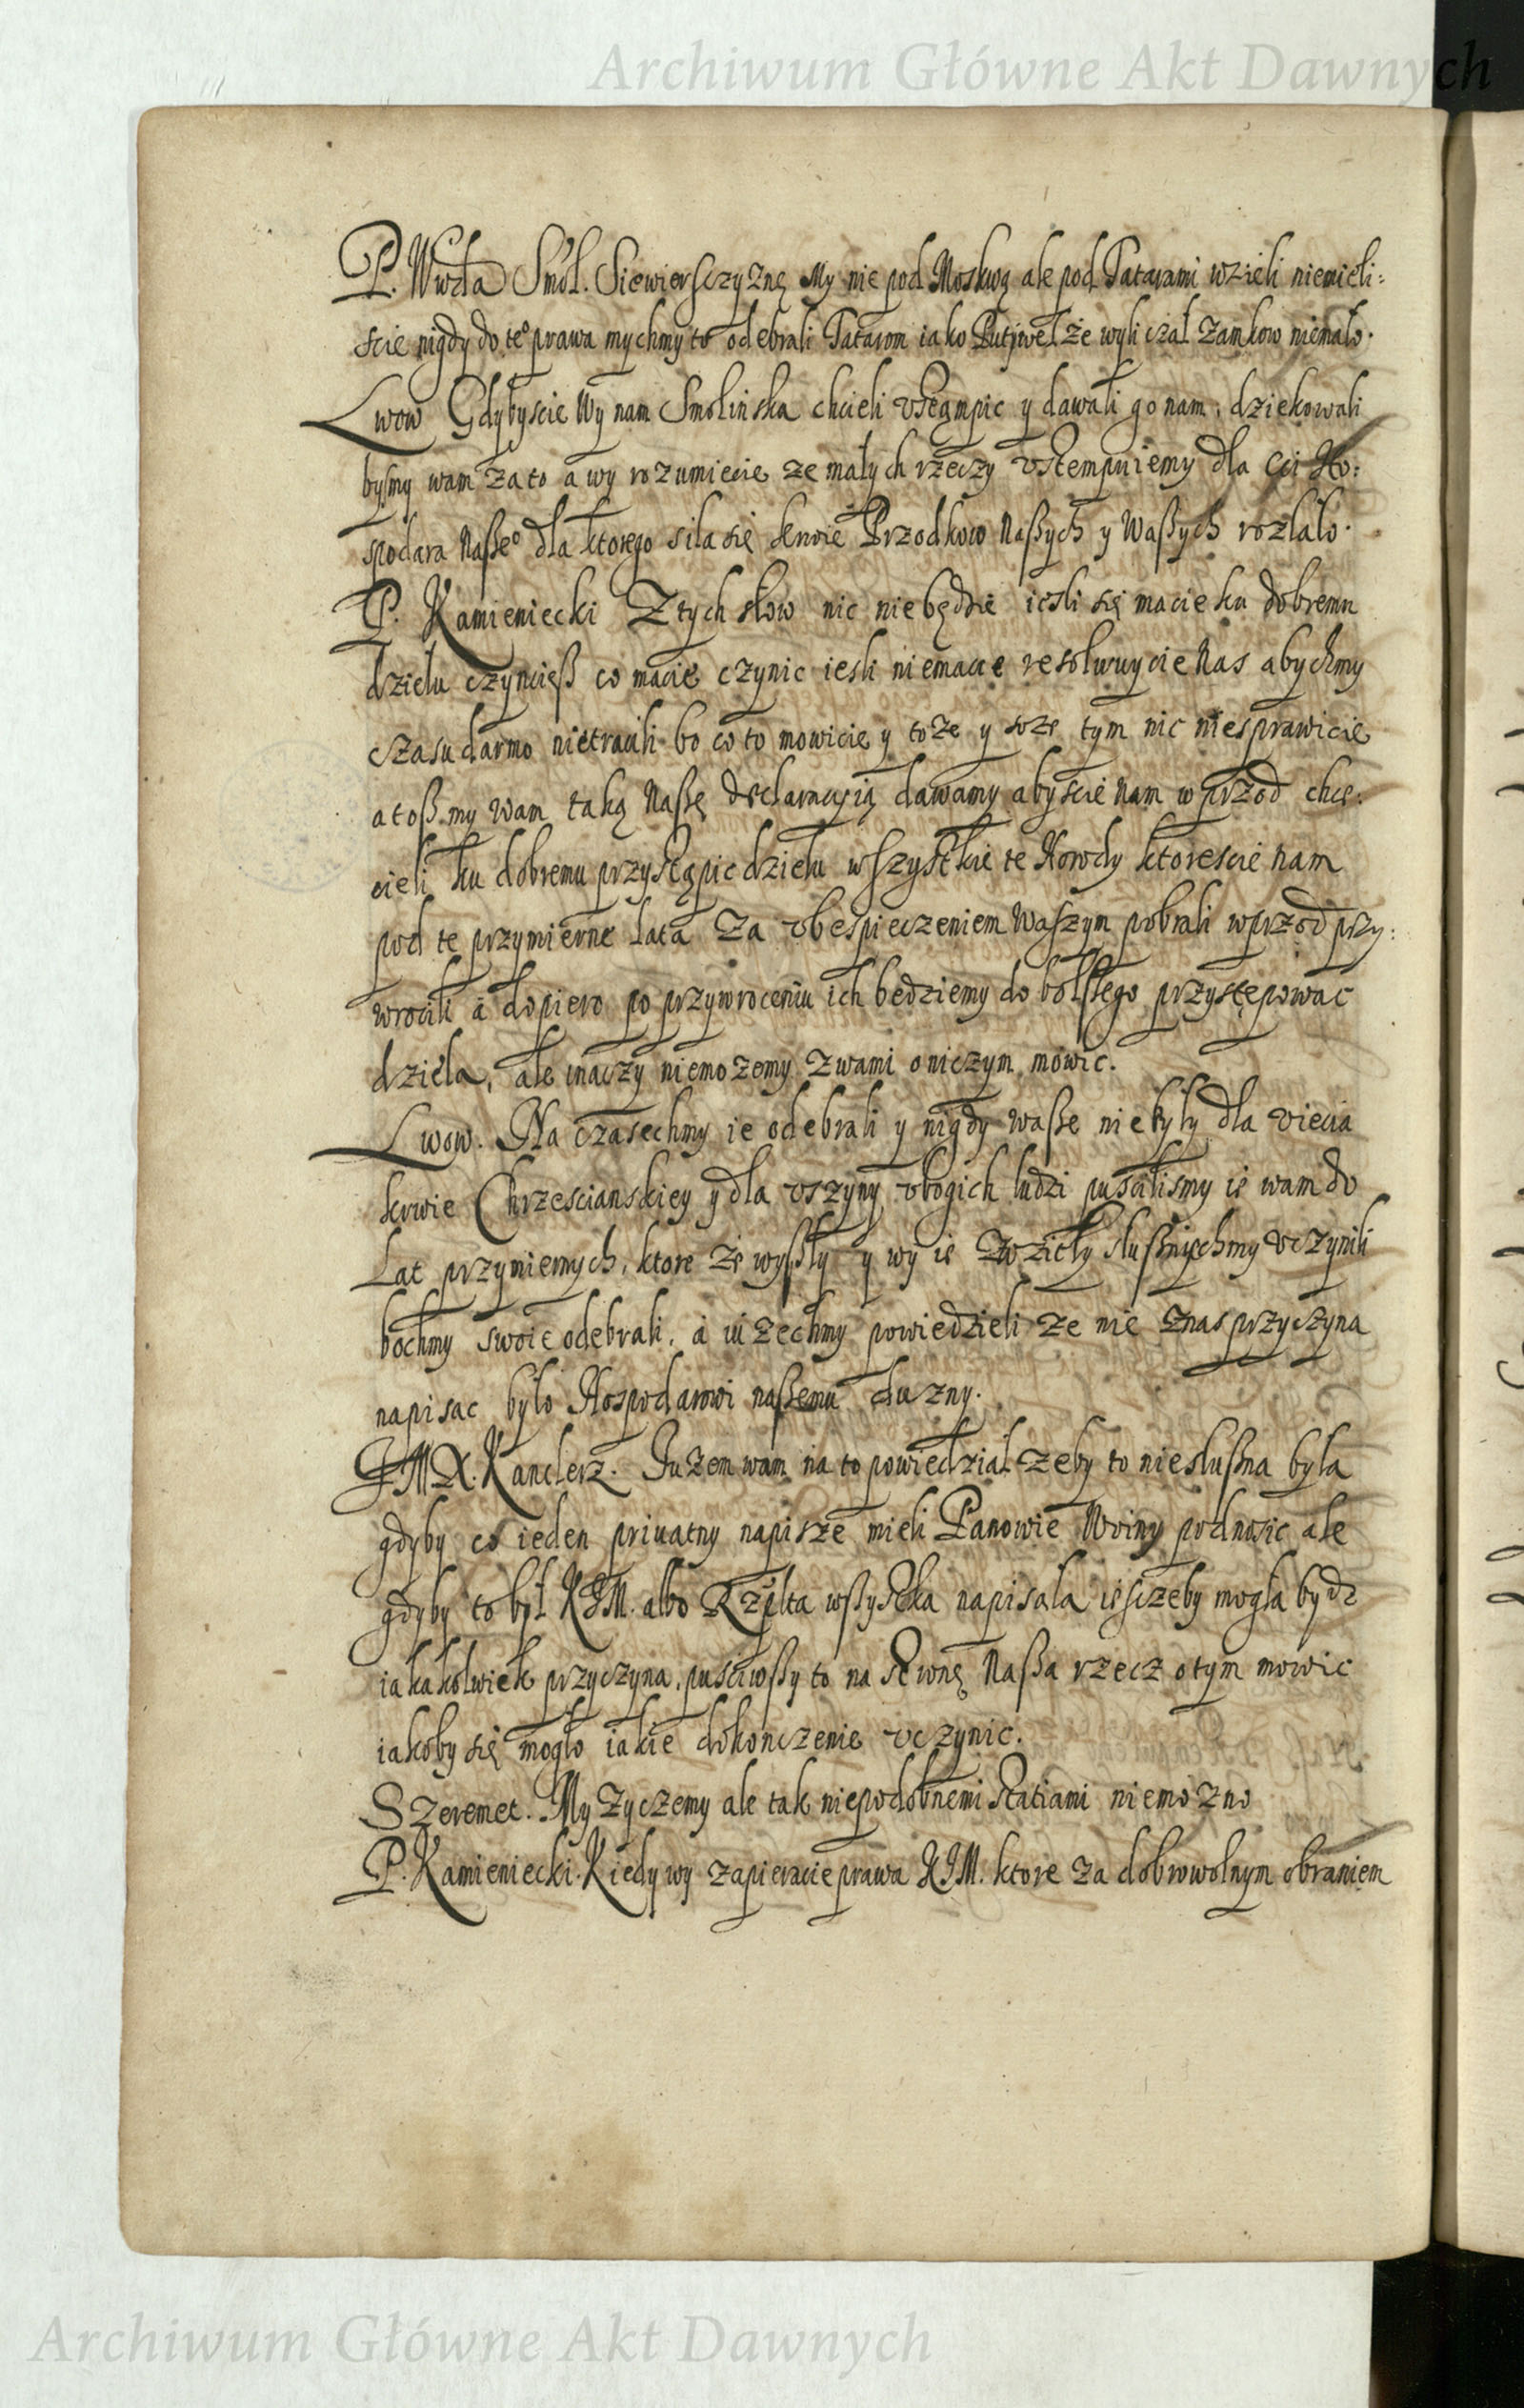 Archiwum Główne Akt Dawnych
P. Wwda Smol. Siewiersczyznę My nie pod Moskwą ale pod Tatarami wzieli niemieli:
scie nigdy do te° prawa mychmy to odebrali Tatarom iako Putiwel że wyliczał Zamkow niemało.
Lwow Gdybyscie Wy nam Smolińska chcieli vstąmpic y dawali go nam, dziekowali
bysmy wam za to a wy rozumiecie ze małych rzeczy vstempuiemy dla cci Ho:
spodara Nasze° dla ktorego siła się krwie Przodkow Naszych y Waszych rozlało.
P. Kamieniecki Z tych słow nic niebędzie iesli się macie ku dobremu
dziełu czyncież co macie czynic iesli niemacie resolwuycie Nas abychmy
czasu darmo nietracili bo co to mowicie y toze y toze tym nic niesprawicie
a toż my Wam taką Naszę declaracyią dawamy abyscie Nam wprzod chcę:
cieli ku dobremu przystąpic dziełu wszystkie te Horody ktorescie Nam
pod te przymierne Lata Za vbespieczeniem Waszym pobrali wprzod przy:
wrocili a dopiero po przywroceniu ich bedziemy do bolszego przystępowac
dzieła, ale inaczy niemozemy z wami o niczym mowic.
Lwow. Na czasechmy ie odebrali y nigdy wasze niebyły dla vięcia
krwie Chrzescianskiey y dla vszyny vbogich ludzi puscilismy ie wam do
Lat przymiernych, ktore że wyszły y wy ie wzięły słusżniechmy vczynili
bochmy swoie odebrali, a iużechmy powiedzieli ze nie znas przyczyna
napisac było Hospodarowi naszemu dłuzny.
JMX. Kanclerz. Jużem wam na to powiedział zeby to niesłuszna była
gdyby co ieden priuatny napisze mieli Panowie Woiny podnosic ale
gdyby to był KJM. albo Rzplta wszystka napisała ieszczeby mogła bydz
iakakolwiek przyczyna, pusciwszy to na stronę Nasza rzecz o tym mowic
iakoby się mogło iakie dokonczenie vczynic.
Szeremet. My Zyczemy ale tak niepodobnemi statiami niemozno
P. Kamieniecki. Kiedy wy zapieracie prawa KJM. ktore za dobrowolnym obraniem
Archiwum Główne Akt Dawnych